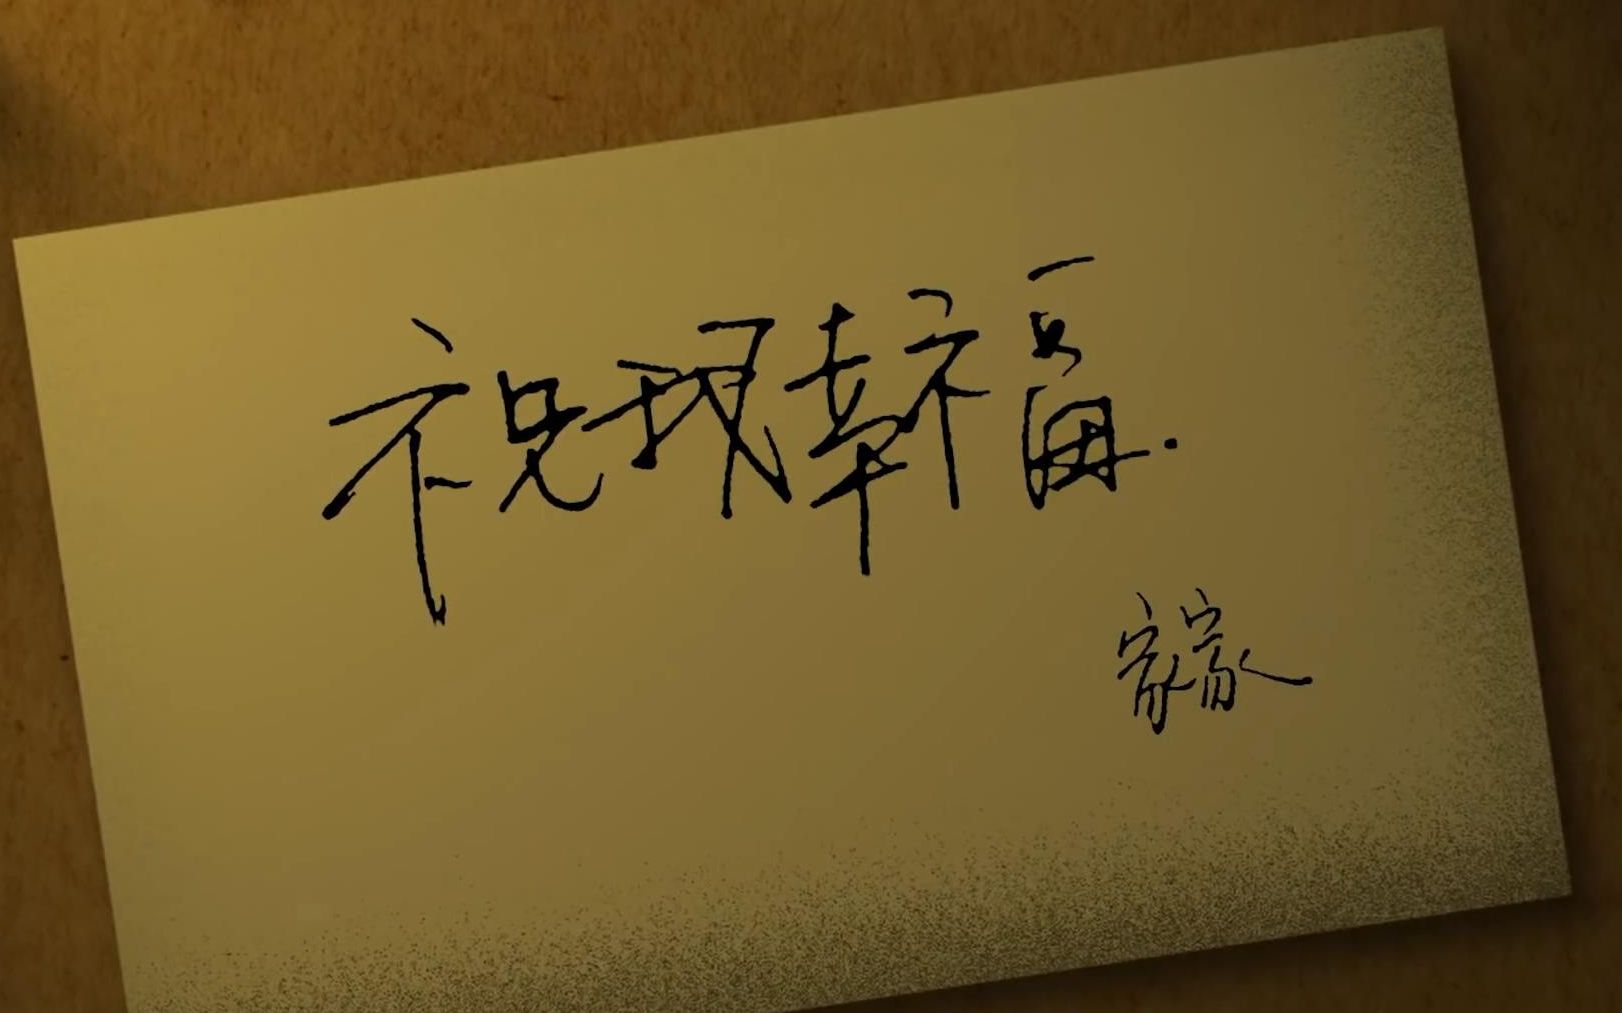 祝我幸福.
家家